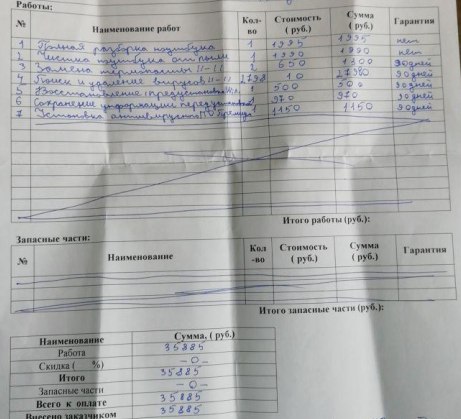 Работы:
№ Наименование работ Кол-во Стоимость ( руб.) Сумма ( руб.) Гарантия
1 Полная разборка ноутбука 1 1995 1995 нет
2 Чистка ноутбука от пыли 1 1990 1990 нет
3 Замена термопасты 11-11 2 650 1300 90 дней
4 Поиск и удаление вирусов 11-11 2798 10 27980 90 дней
5 Восстановление 1 500 500 90 дней
6 Сохранение информации 1 970 970 90 дней
7 Установка антивирусного ПО 1 1150 1150 90 дней
Итого работы (руб.):
Запасные части:
№ Наименование Кол-во Стоимость ( руб.) Сумма ( руб.) Гарантия
Итого запасные части (руб.):
Наименование Сумма, ( руб.)
Работа 35885
Скидка ( %) -0-
Итого 35885
Запасные части -0-
Всего к оплате 35885
Внесено заказчиком 35885